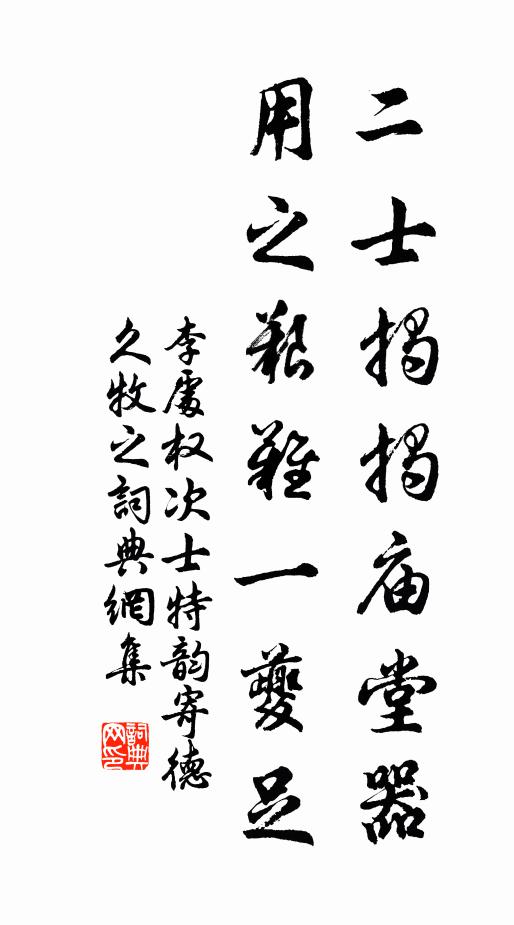 二士揭揭庙堂器
用之艱難一夔足
李處权次士特韵寄德
久牧之詞典網集
詞典网印